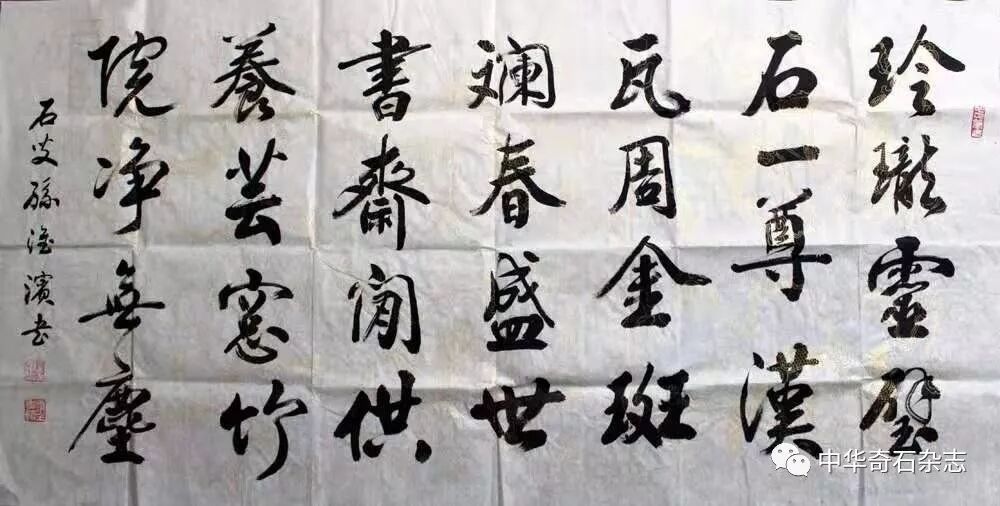 玲瓏靈璧
石一尊漢
瓦周金斑
斓春盛世
書齋閒供
養芸窓竹
院净無塵
石叟孫淮濱书
中华奇石杂志